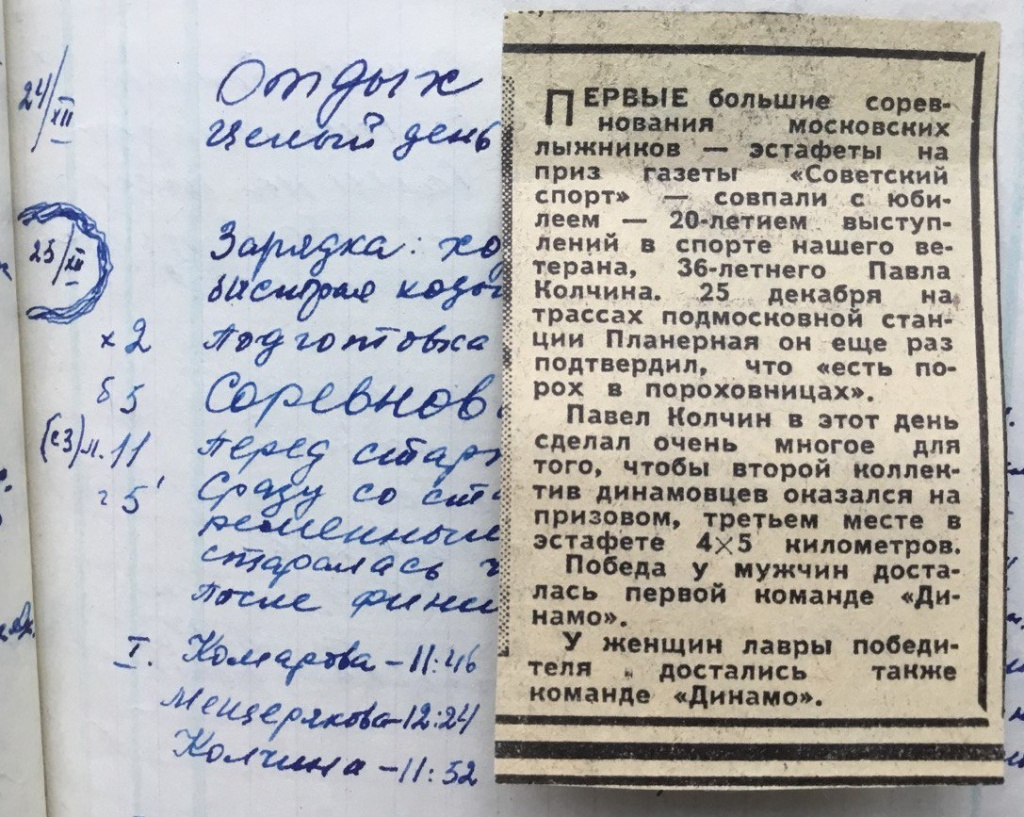 24/XII
Отдых
целый день
25/XII
Зарядка: хо
быстрая ходь
х 2 Подготовка
б 5 Соревнов
(с3) л. 11 Перед старт
г 5' Сразу со ст
ременным
старалась
После фини
I. Комарова – 11:46
Мещерякова – 12:24
Колчина – 11:52
ПЕРВЫЕ большие сорев-
нования московских
лыжников — эстафеты на
приз газеты «Советский
спорт» — совпали с юби-
леем — 20-летием выступ-
лений в спорте нашего ве-
терана, 36-летнего Павла
Колчина. 25 декабря на
трассах подмосковной стан-
ции Планерная он еще раз
подтвердил, что «есть по-
рох в пороховницах».
Павел Колчин в этот день
сделал очень многое для
того, чтобы второй коллек-
тив динамовцев оказался на
призовом, третьем месте в
эстафете 4×5 километров.
Победа у мужчин доста-
лась первой команде «Ди-
намо».
У женщин лавры победи-
теля достались также
команде «Динамо».